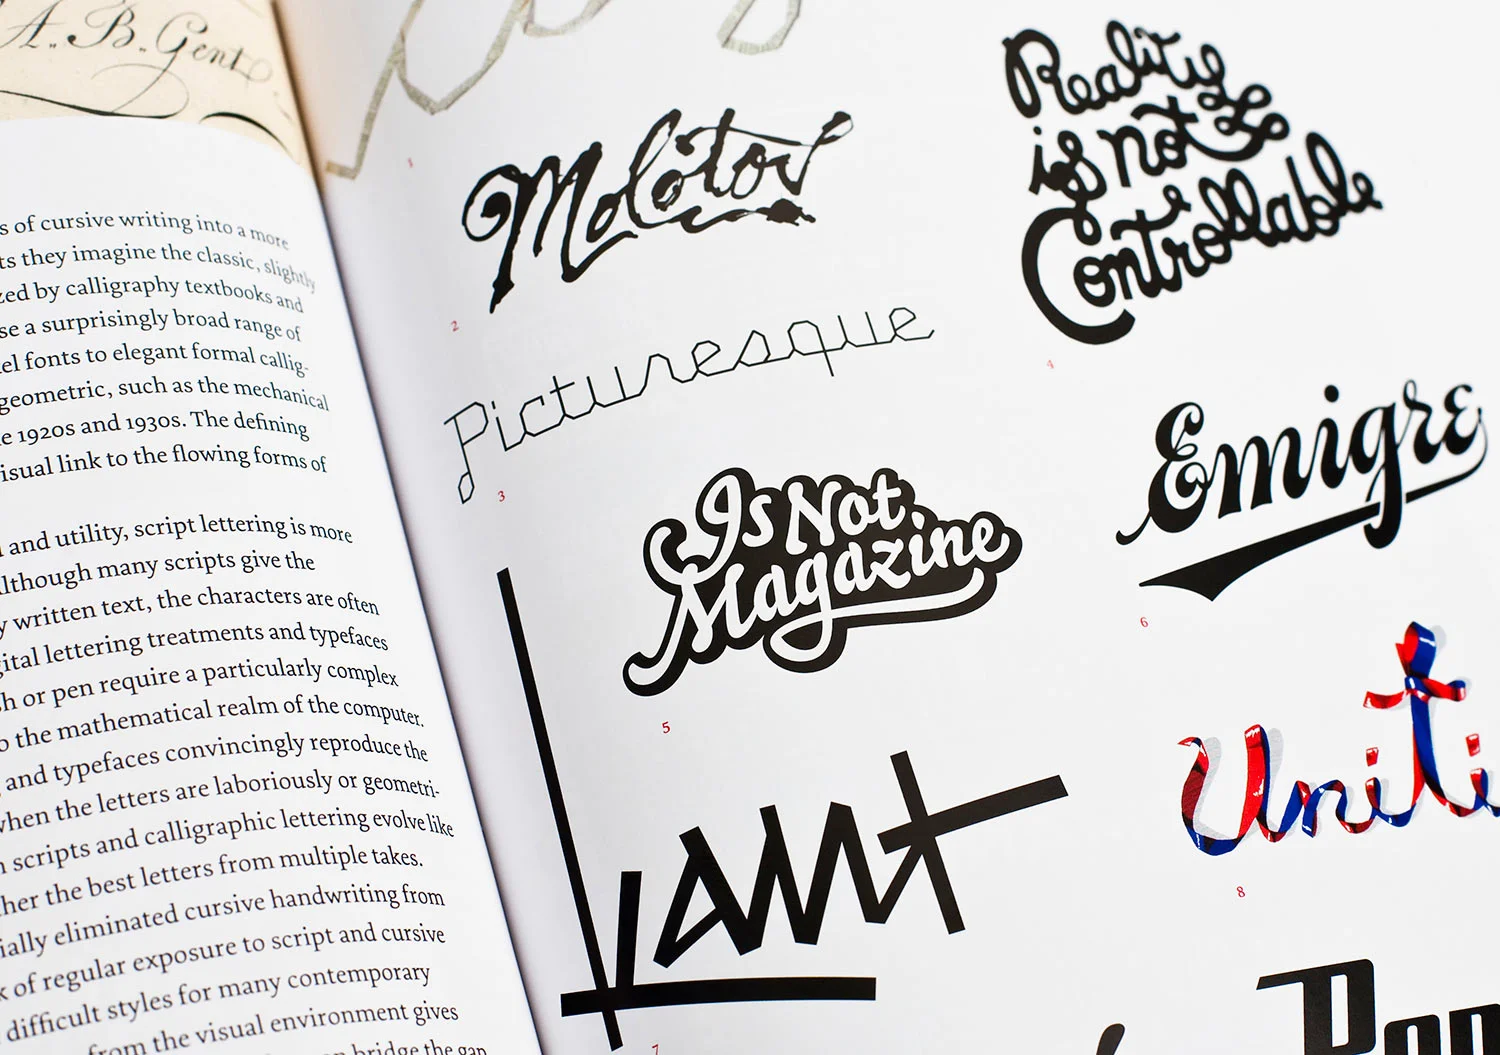 A.. B.. Gent
s of cursive writing into a more
ts they imagine the classic, slightly
zed by calligraphy textbooks and
se a surprisingly broad range of
el fonts to elegant formal callig-
geometric, such as the mechanical
e 1920s and 1930s. The defining
isual link to the flowing forms of
and utility, script lettering is more
lthough many scripts give the
y written text, the characters are often
gital lettering treatments and typefaces
sh or pen require a particularly complex
o the mathematical realm of the computer.
, and typefaces convincingly reproduce the
when the letters are laboriously or geometri-
n scripts and calligraphic lettering evolve like
her the best letters from multiple takes.
ially eliminated cursive handwriting from
k of regular exposure to script and cursive
difficult styles for many contemporary
from the visual environment gives
bridge the gap
1
Molotov
2
Picturesque
3
Reality
is not
Controllable
4
Is Not
Magazine
5
Emigre
6
Kant
7
Uniti
8
Pop